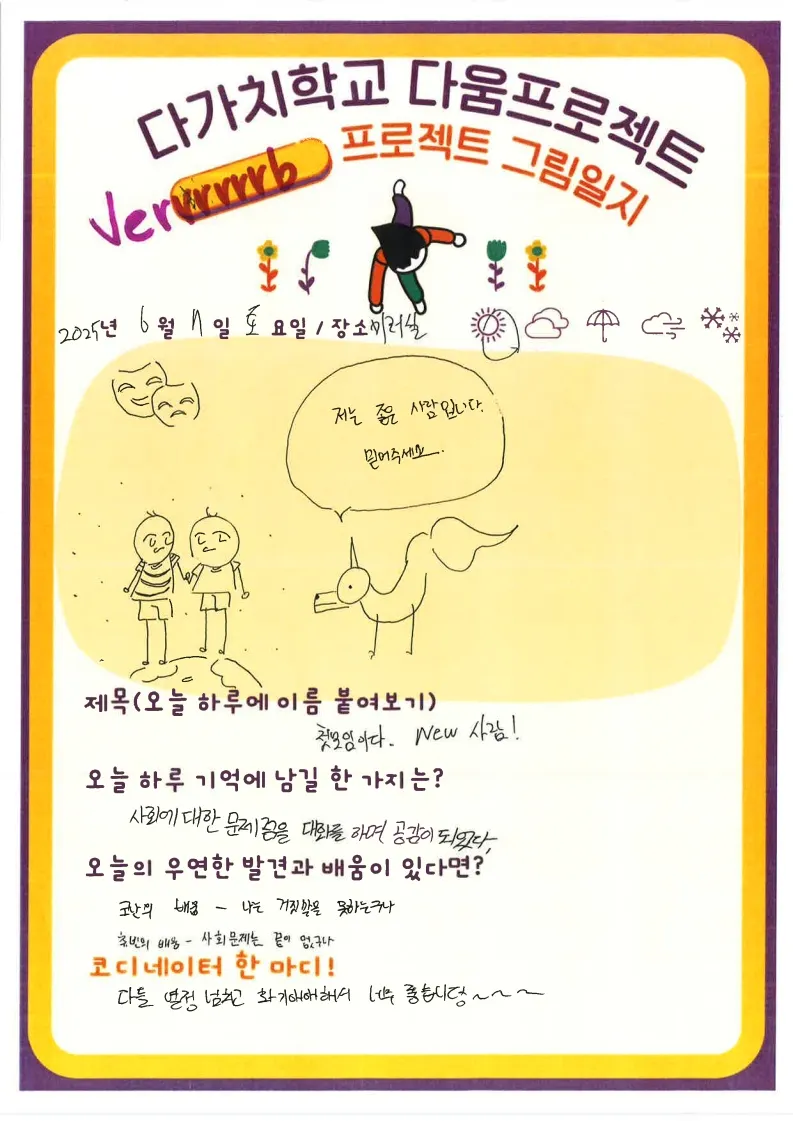 다가치학교 다움프로젝트
프로젝트 그림일지
Verrrrrrb
2025년 6월 일 토요일 / 장소미러실
저는 좋은 사람입니다.
믿어주세요.
제목(오늘 하루에 이름 붙여보기)
첫모임이다. New 사람!
오늘 하루 기억에 남길 한 가지는?
사회에 대한 문제점을 대화를 하며 공감이 되었다,
오늘의 우연한 발견과 배움이 있다면?
배움 - 나는 거짓말을 못하는구나
배움 - 사회문제는 끝이 없구나
코디네이터 한 마디!
다들 열정 넘치고 화기애애해서 너무 좋습니당~~~